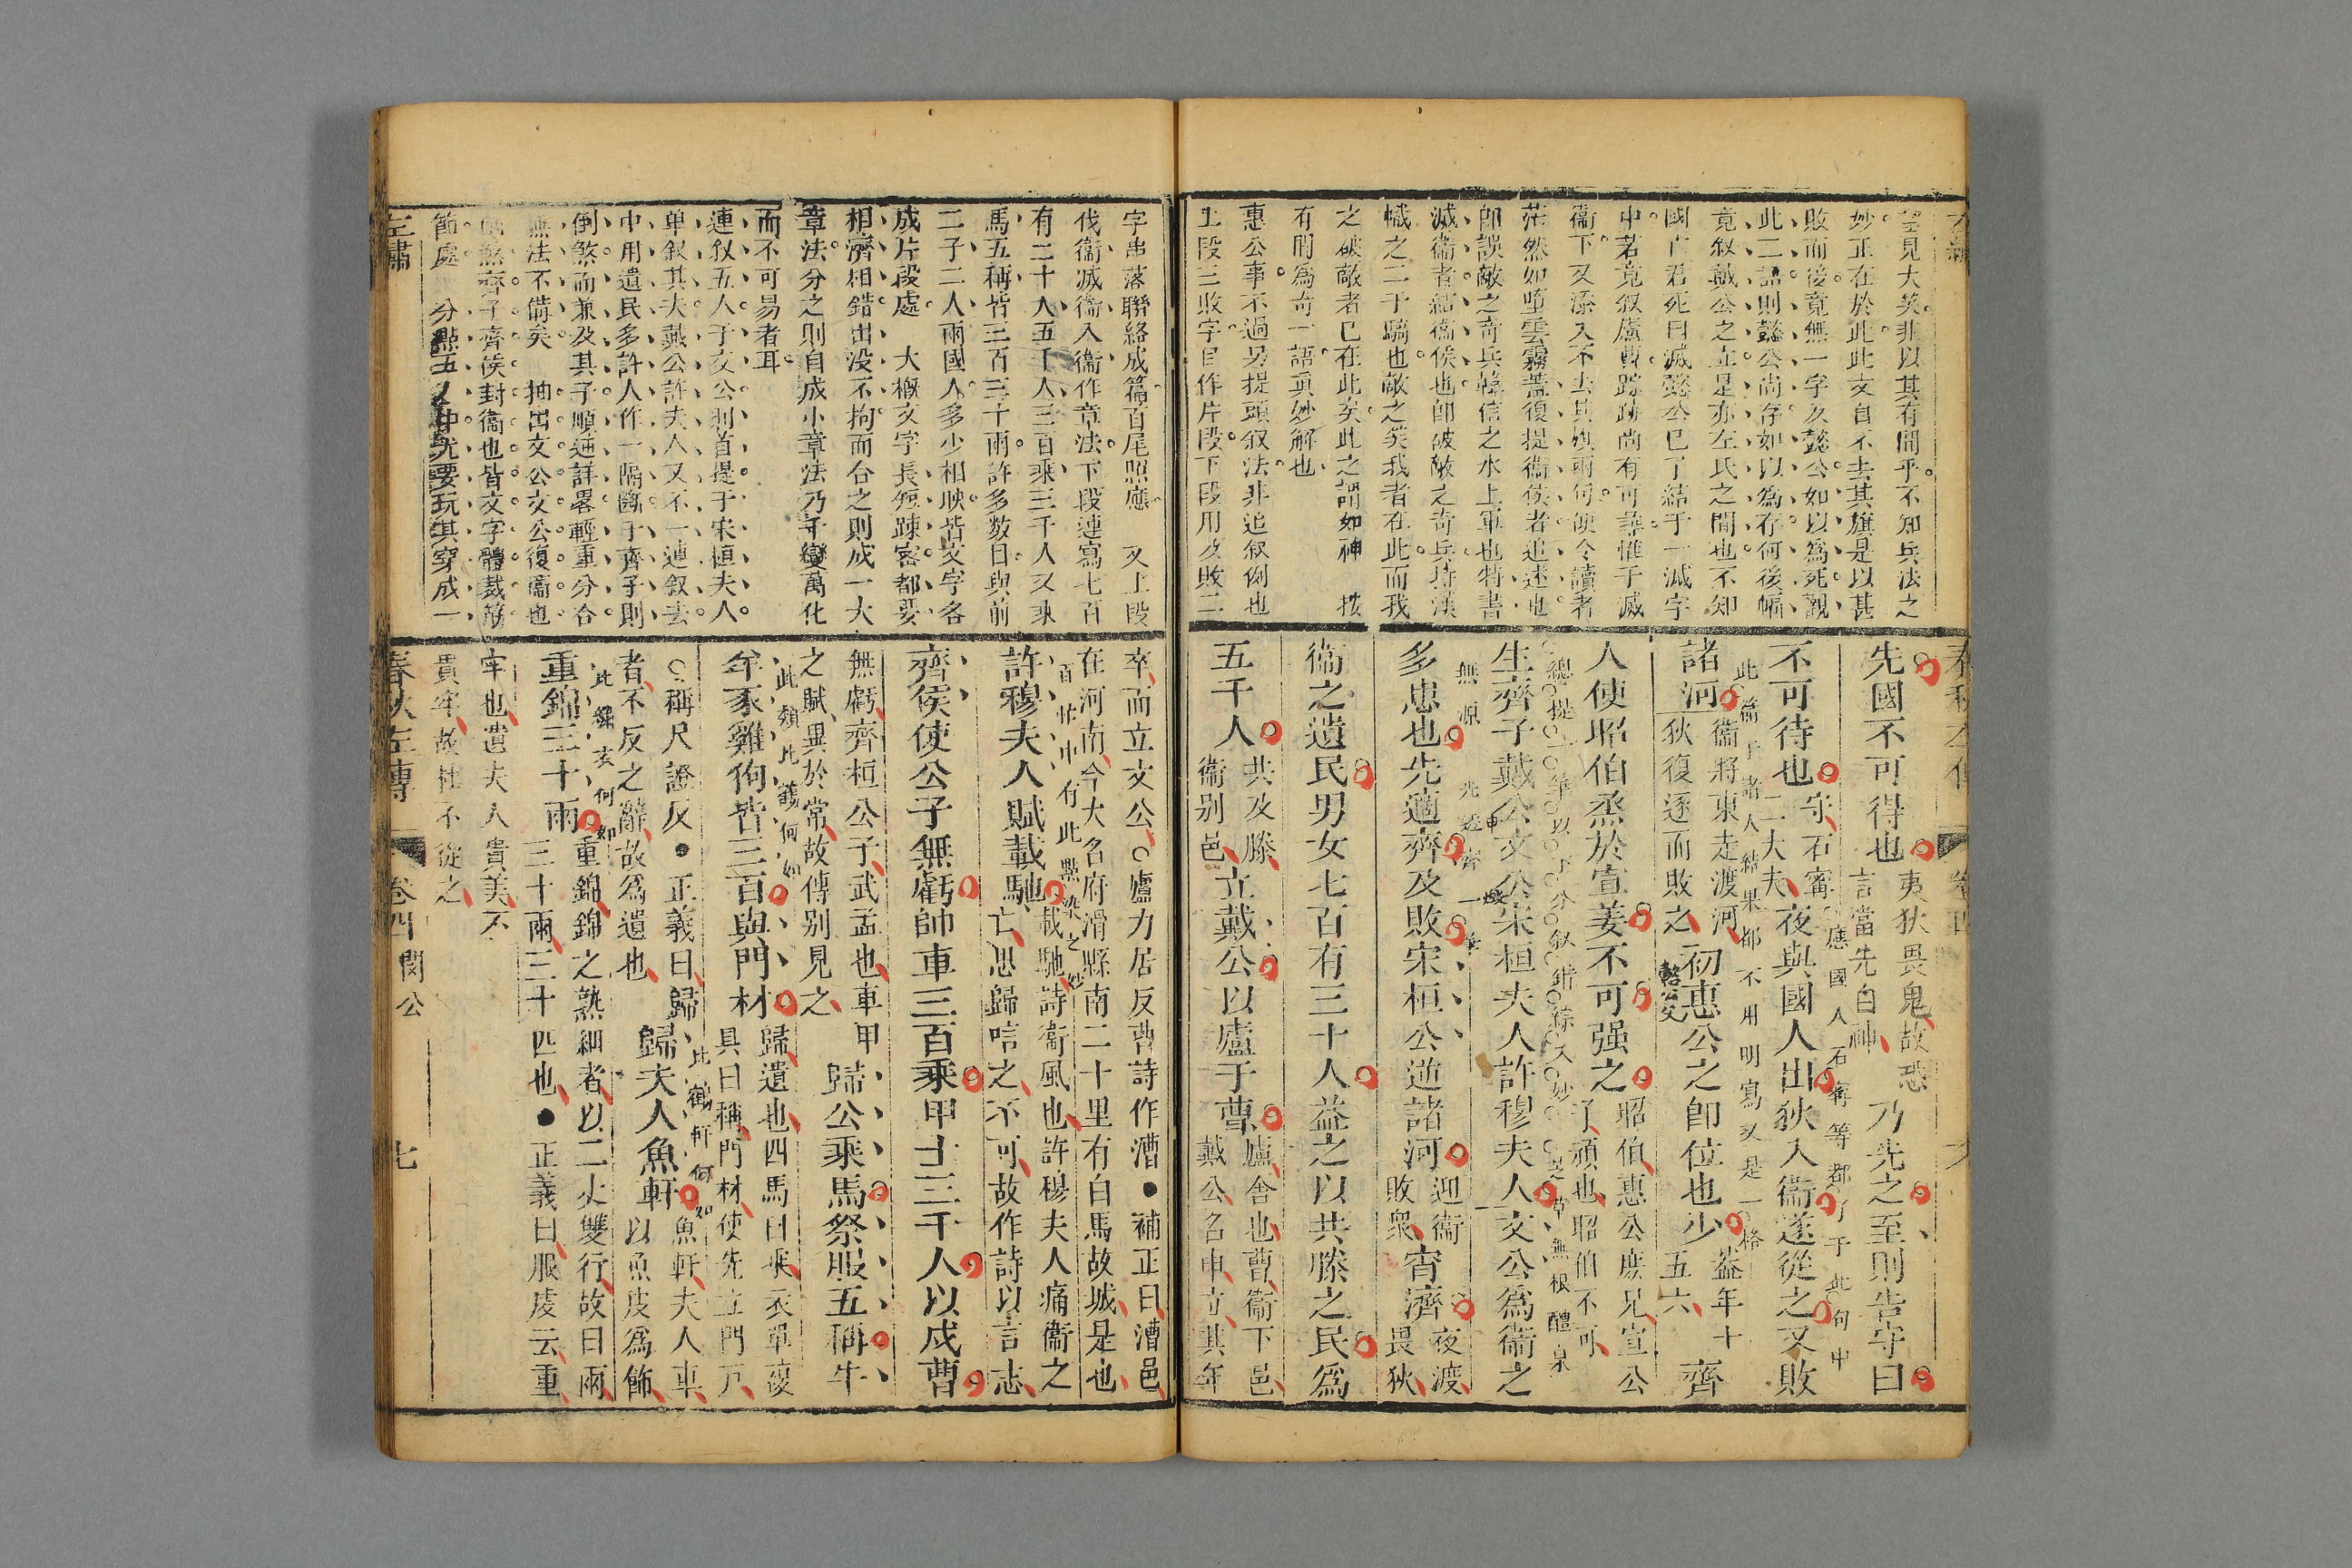 望見大笑非以其有間乎不知兵法之
妙正在於此此文自不去其旗是以甚
敗而後竟無一字及懿公如以爲死觀
此二語則懿公尚存如以爲存何後幅
竟叙戴公之立是亦左氏之間也不知
國亡君死曰滅懿公已了結于一滅字
中若竟叙廬曹踪跡尚有可尋惟于滅
衞下又添入不去其旗兩句便令讀者
茫然如墮雲霧葢復提衞侯者追述也
卽誤敵之奇兵韓信之水上軍也特書
滅衞者結衞侯也卽破敵之奇兵
幟之二千騎也敵之笑我者在此而我
之破敵者已在此矣此之謂如神 按
有間爲奇一語真妙解也
惠公事不過另提頭叙法非追叙倒也
上段三敗字自作片段下段用及敗二
先國不可得也
夷狄畏鬼故恐
言當先白神
乃先之至則告守曰
不可待也
守石甯
二大夫
夜與國人出狄入衞遂從之又敗
應國人石甯等都了于此句中
此篇于諸人結果都不用明寫又是一格
諸河
衞將東走渡河
狄復逐而敗之
初惠公之卽位也少
葢年十
五六
齊
人使昭伯烝於宣姜不可强之
昭伯惠公庶兄宣公
子頑也昭伯不可
總提一筆以下分叙錯綜入妙
芝草無根醴泉
無源
生齊子戴公文公宋桓夫人許穆夫人文公爲衞之
多患也先適齊及敗宋桓公逆諸河
迎衞
敗衆
宵濟
夜渡
畏狄
衞之遺民男女七百有三十人益之以共滕之民爲
五千人
共及滕
衞别邑
立戴公以廬于曹
廬舍也曹衞下邑
戴公名申立其年
字串落聯絡成篇首尾照應 又上段
伐衞滅衞入衞作章法下段連寫七百
有二十人五千人三百乘三千人又乘
馬五稱皆三百三十兩許多數目與前
二子二人兩國人多少相映皆文字各
成片段處 大槪文字長短踈密都要
相濟相錯出没不拘而合之則成一大
章法分之則自成小章法乃千變萬化
而不可易者耳
連叙五人于文公則首提于宋桓夫人
單叙其夫戴公許夫人又不一連叙去
中用遺民多許人作一隔斷于齊子則
倒煞而兼及其子順逆詳畧輕重分合
無法不備矣 抽出文公文公復衞也
煞齊子齊侯封衞也皆文字體裁筋
節處 分點五人中尤要玩其穿成一
卒而立文公○廬力居反曹詩作漕●補正曰漕邑
在河南今大名府滑縣南二十里有白馬故城是也
許穆夫人賦載馳
載馳詩衞風也許穆夫人痛衞之
亡思歸唁之不可故作詩以言志
百忙中有此點染之妙
齊侯使公子無虧帥車三百乘甲士三千人以戍曹
無虧齊桓公子武孟也車甲
之賦異於常故傳别見之
歸公乘馬祭服五稱牛
羊豕雞狗皆三百與門材
歸遺也四馬曰乘衣單複
具曰稱門材使先立門戸
此類比鶴何如
○稱尺證反●正義曰歸
者不反之辭故爲遺也
歸夫人魚軒
魚軒夫人車
以魚皮爲飾
比鶴軒何如
重錦三十兩
重錦錦之熟細者以二丈雙行故曰兩
三十兩三十匹也●正義曰服虔云重
牢也遺夫人貴美不
貴牢故杜不從之
左繡
春秋左傳
卷四
閔公
七